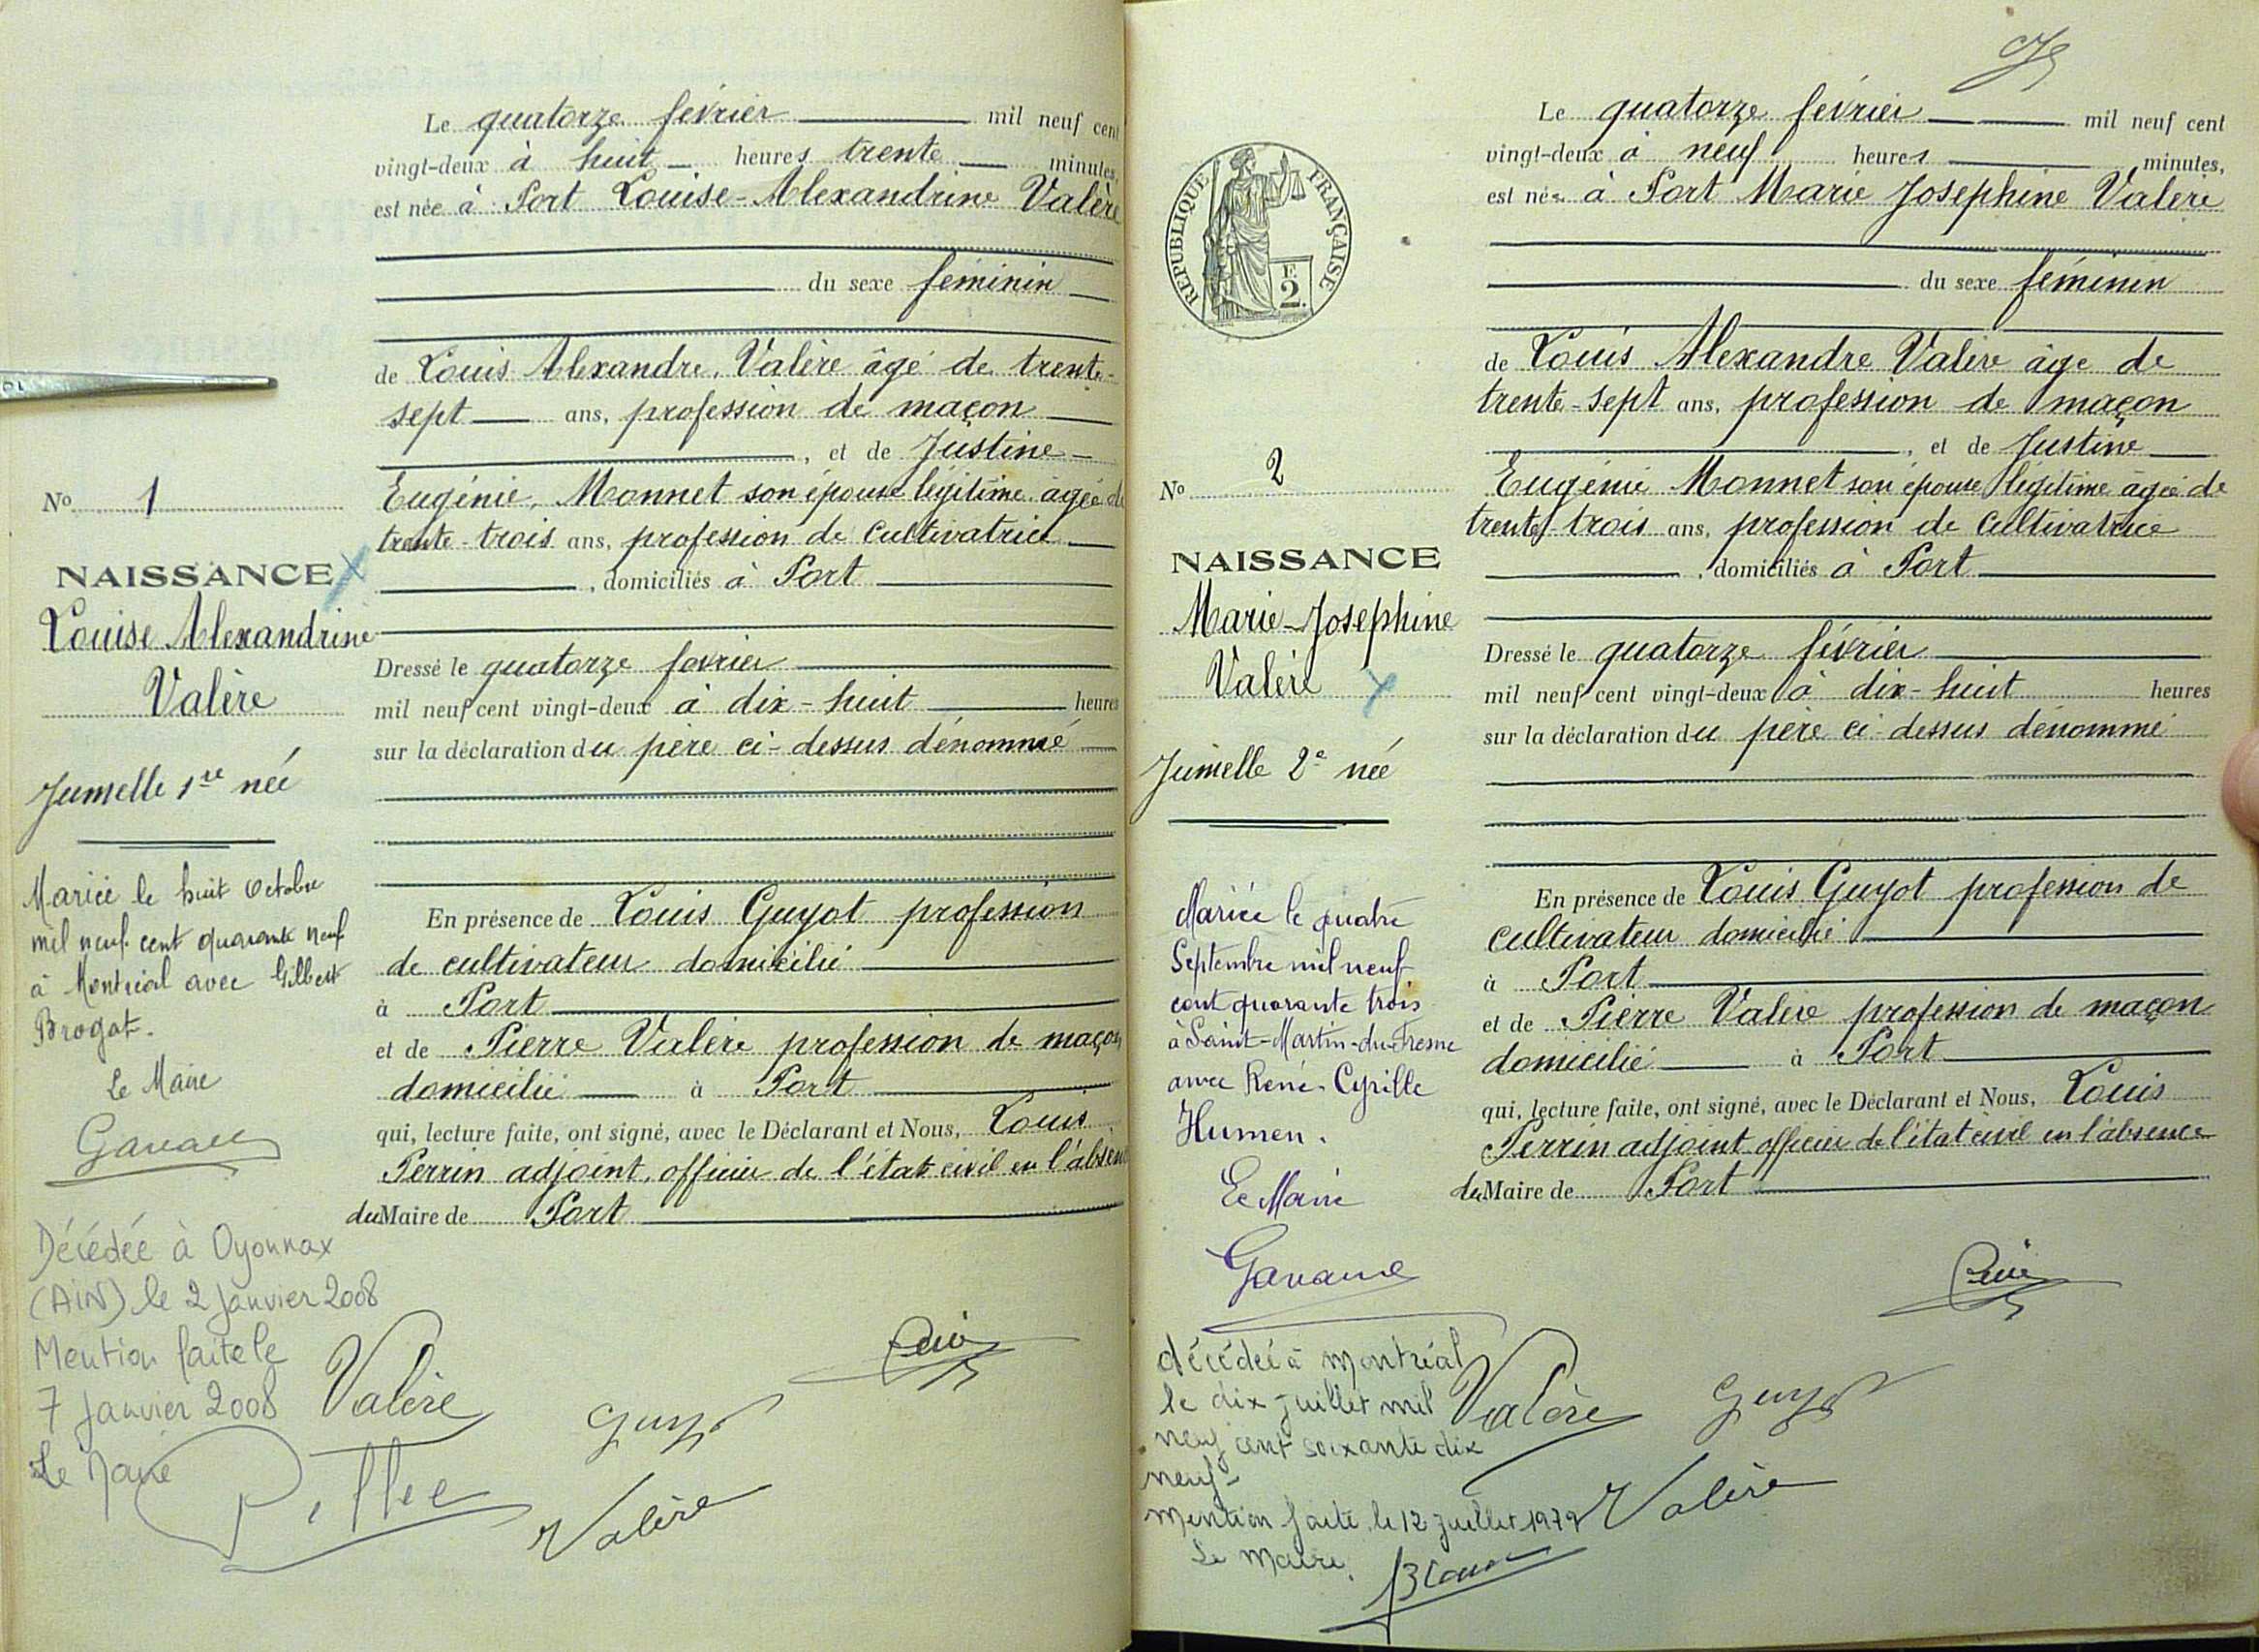 Le quatorze février mil neuf cent
vingt-deux à huit heures trente minutes,
est née à Port Louise-Alexandrine Valère
du sexe féminin
de Louis Alexandre, Valère âgé de trente-
sept ans, profession de maçon
, et de Justine
Eugénie, Monnet son épouse légitime âgée de
trente-trois ans, profession de cultivatrice
, domiciliés à Port
Dressé le quatorze février
mil neuf cent vingt-deux à dix-huit heures
sur la déclaration du père ci-dessus dénommé
En présence de Louis Guyot profession
de cultivateur domicilié
à Port
et de Pierre Valère profession de maçon
domicilié à Port
qui, lecture faite, ont signé, avec le Déclarant et Nous, Louis
Perrin adjoint, officier de l'état civil en l'absence
du Maire de Port
No 1
NAISSANCE
Louise Alexandrine
Valère
Jumelle 1re née
Mariée le huit Octobre
mil neuf cent quarante neuf
à Montréal avec Gilbert
Brogat.
Le Maire
Décédée à Oyonnax
(AiN) le 2 janvier 2008
Mention faite le
7 janvier 2008
Le Maire
Valère
Guyot
Valère
Le quatorze février mil neuf cent
vingt-deux à neuf heures minutes,
est née à Port Marie Josephine Valère
du sexe féminin
de Louis Alexandre Valère âgé de
trente-sept ans, profession de maçon
, et de Justine
Eugénie Monnet son épouse légitime âgée de
trente-trois ans, profession de cultivatrice
, domiciliés à Port
Dressé le quatorze février
mil neuf cent vingt-deux à dix-huit heures
sur la déclaration du père ci-dessus dénommé
En présence de Louis Guyot profession de
cultivateur domicilié
à Port
et de Pierre Valère profession de maçon
domicilié à Port
qui, lecture faite, ont signé, avec le Déclarant et Nous, Louis
Perrin adjoint officier de l'état civil en l'absence
du Maire de Port
RÉPUBLIQUE FRANÇAISE
F.
2.
No 2
NAISSANCE
Marie-Josephine
Valère
Jumelle 2e née
Mariée le quatre
Septembre mil neuf
cent quarante trois
à Saint-Martin-du-Fresne
avec René-Cyrille
Humen.
Le Maire
décédée à Montréal
le dix juillet mil
neuf cent soixante dix
neuf-
Mention faite le 12 juillet 1979
Le Maire.
Valère
Guyot
Valère